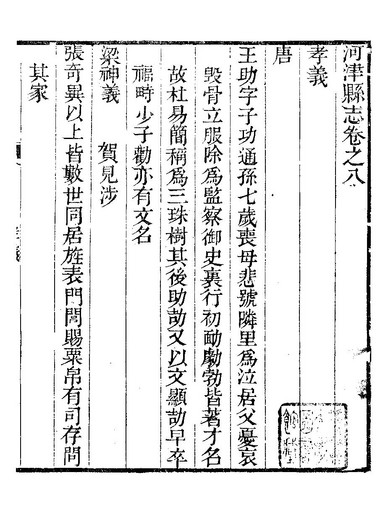 河津縣志卷之八
孝義
唐
王助字子功通孫七歲喪母悲號隣里為泣居父憂哀
毀骨立服除為監察御史裏行初勔勮勃皆著才名
故杜易簡稱為三珠樹其後助劼又以文顯劼早卒
福畤少子勸亦有文名
梁神義　賀見涉
張奇異以上皆數世同居旌表門閭賜粟帛有司存問
其家